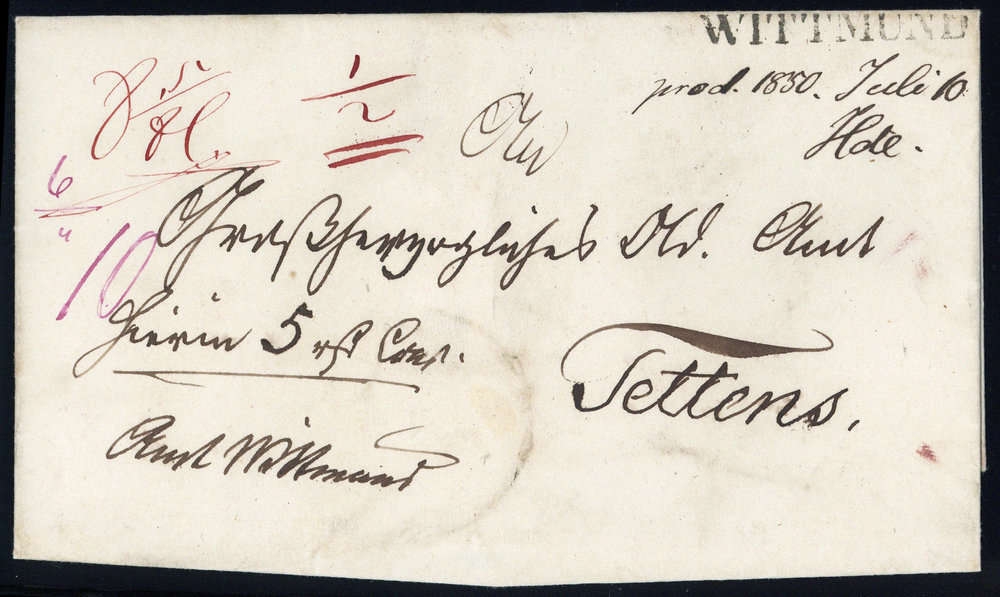 WITTMUND
prod. 1850. Juli 10
Hde.
1/2
An
6
10
Großherzogliches Old. Amt
hierin 5 rß Cour.
Tettens.
Amt Wittmund